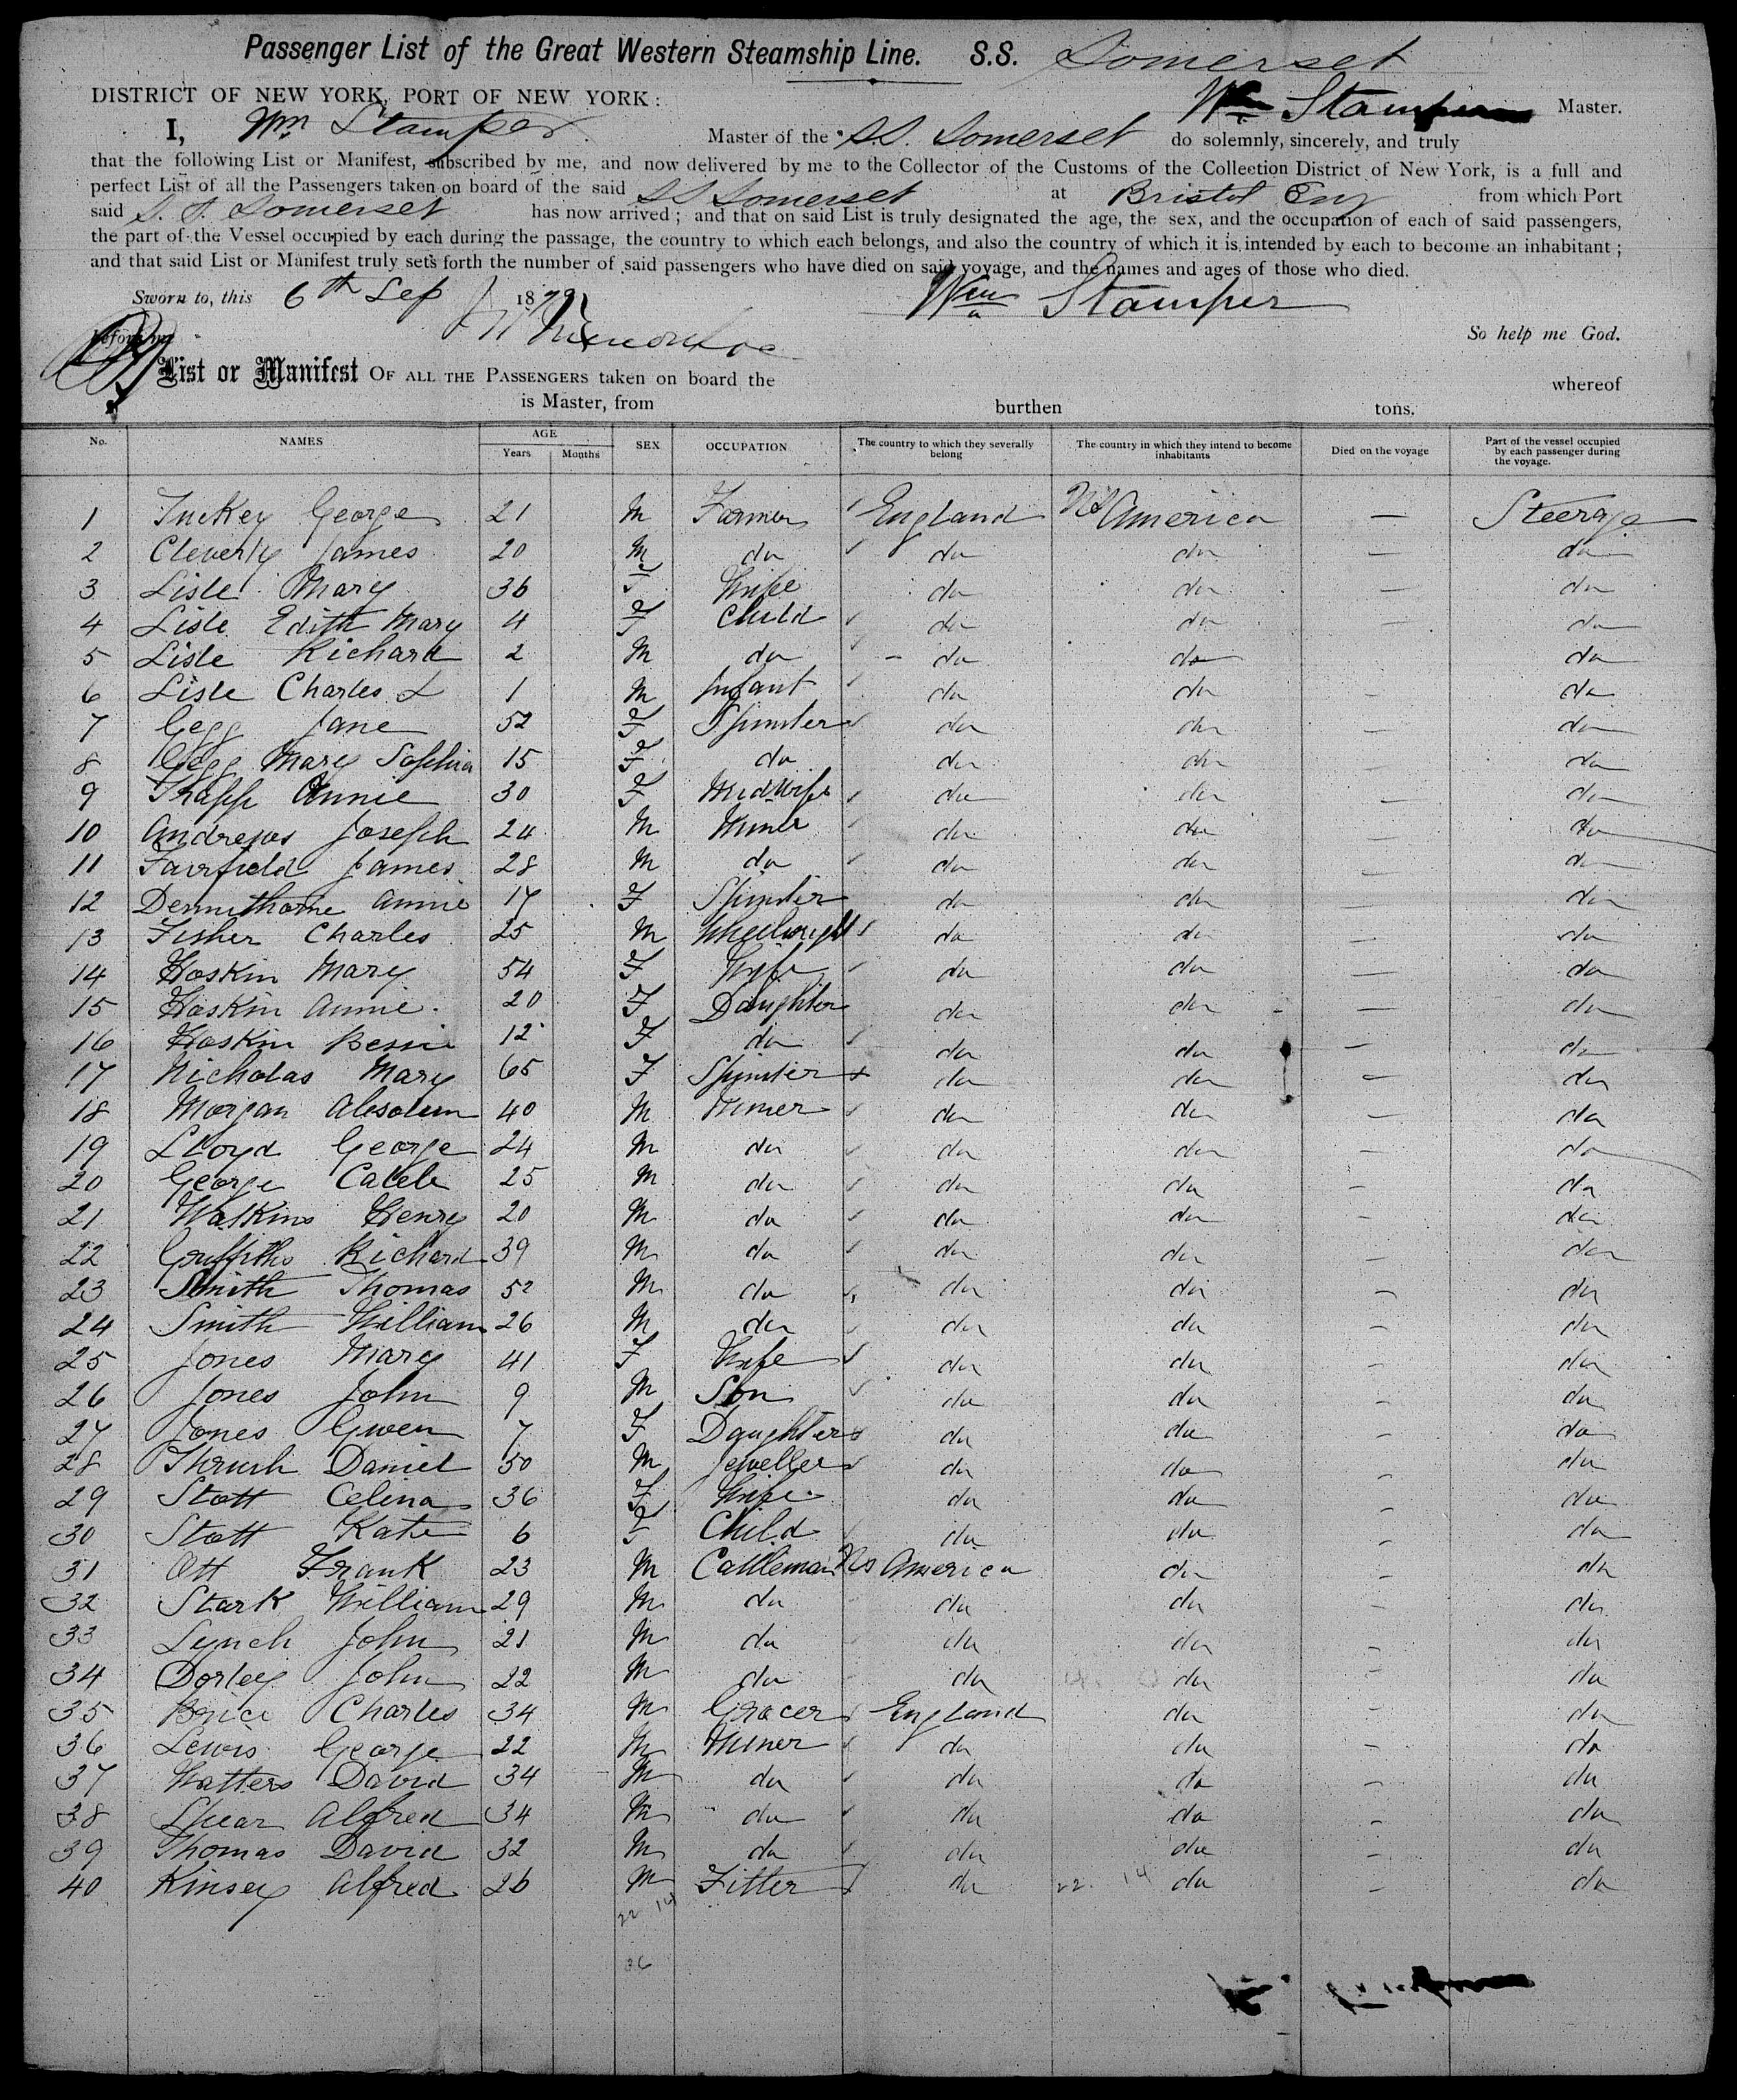 Passenger List of the Great Western Steamship Line. S.S. Somerset
DISTRICT OF NEW YORK, PORT OF NEW YORK: Wm Stamper Master.
I, Wm Stamper Master of the S.S. Somerset do solemnly, sincerely, and truly
that the following List or Manifest, subscribed by me, and now delivered by me to the Collector of the Customs of the Collection District of New York, is a full and
perfect List of all the Passengers taken on board of the said SS Somerset at Bristol Eng from which Port
said S.S. Somerset has now arrived; and that on said List is truly designated the age, the sex, and the occupation of each of said passengers,
the part of the Vessel occupied by each during the passage, the country to which each belongs, and also the country of which it is intended by each to become an inhabitant;
and that said List or Manifest truly sets forth the number of said passengers who have died on said voyage, and the names and ages of those who died.
Sworn to, this 6th Sep 1879 Wm Stamper
before me So help me God.
List or Manifest OF ALL THE PASSENGERS taken on board the whereof
is Master, from burthen tons.
No. NAMES AGE Years Months SEX OCCUPATION The country to which they severally belong The country in which they intend to become inhabitants Died on the voyage Part of the vessel occupied by each passenger during the voyage.
1 Tuckey George 21 M Farmer England No America — Steerage
2 Cleverly James 20 M do do do — do
3 Lisle Mary 36 F Wife do do — do
4 Lisle Edith Mary 4 F Child do do — do
5 Lisle Richard 2 M do do do do
6 Lisle Charles L 1 M Infant do do — do
7 Gegg Jane 52 F Spinster do do — do
8 Gegg Mary Sophia 15 F do do do — do
9 Thapp Annie 30 F Midwife do do — do
10 Andrews Joseph 24 M Miner do do — do
11 Fairfield James 28 M do do do — do
12 Dennithorne Annie 17 F Spinster do do — do
13 Fisher Charles 25 M Wheelwright do do — do
14 Hoskin Mary 54 F Wife do do — do
15 Hoskin Annie 20 F Daughter do do — do
16 Hoskin Bessie 12 F do do do — do
17 Nicholas Mary 65 F Spinster do do — do
18 Morgan Absolum 40 M Miner do do — do
19 Lloyd George 24 M do do do — do
20 George Caleb 25 M do do do — do
21 Watkins Henry 20 M do do do — do
22 Griffiths Richard 39 M do do do — do
23 Smith Thomas 52 M do do do — do
24 Smith William 26 M do do do — do
25 Jones Mary 41 F Wife do do — do
26 Jones John 9 M Son do do — do
27 Jones Gwen 7 F Daughter do do — do
28 Thrush Daniel 50 M Jeweller do do — do
29 Stott Celina 36 F Wife do do — do
30 Stott Kate 6 F Child do do — do
31 Ott Frank 23 M Cattleman No America do — do
32 Stark William 29 M do do do — do
33 Lynch John 21 M do do do — do
34 Dorley John 22 M do do do — do
35 Brice Charles 34 M Grocer England do — do
36 Lewis George 22 M Miner do do — do
37 Watters David 34 M do do do — do
38 Spear Alfred 34 M do do do — do
39 Thomas David 32 M do do do — do
40 Kinsey Alfred 26 M Fitter do 22 14 do — do
22 14
36